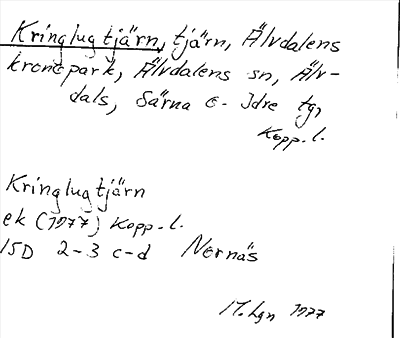 Kringlugtjärn, tjärn, Älvdalens
kronopark, Älvdalens sn, Älv-
dals, Särna o. Idre tg,
Kopp. l.
Kringlugtjärn
ek (1977) Kopp. l.
15D 2-3 c-d Nornäs
1977